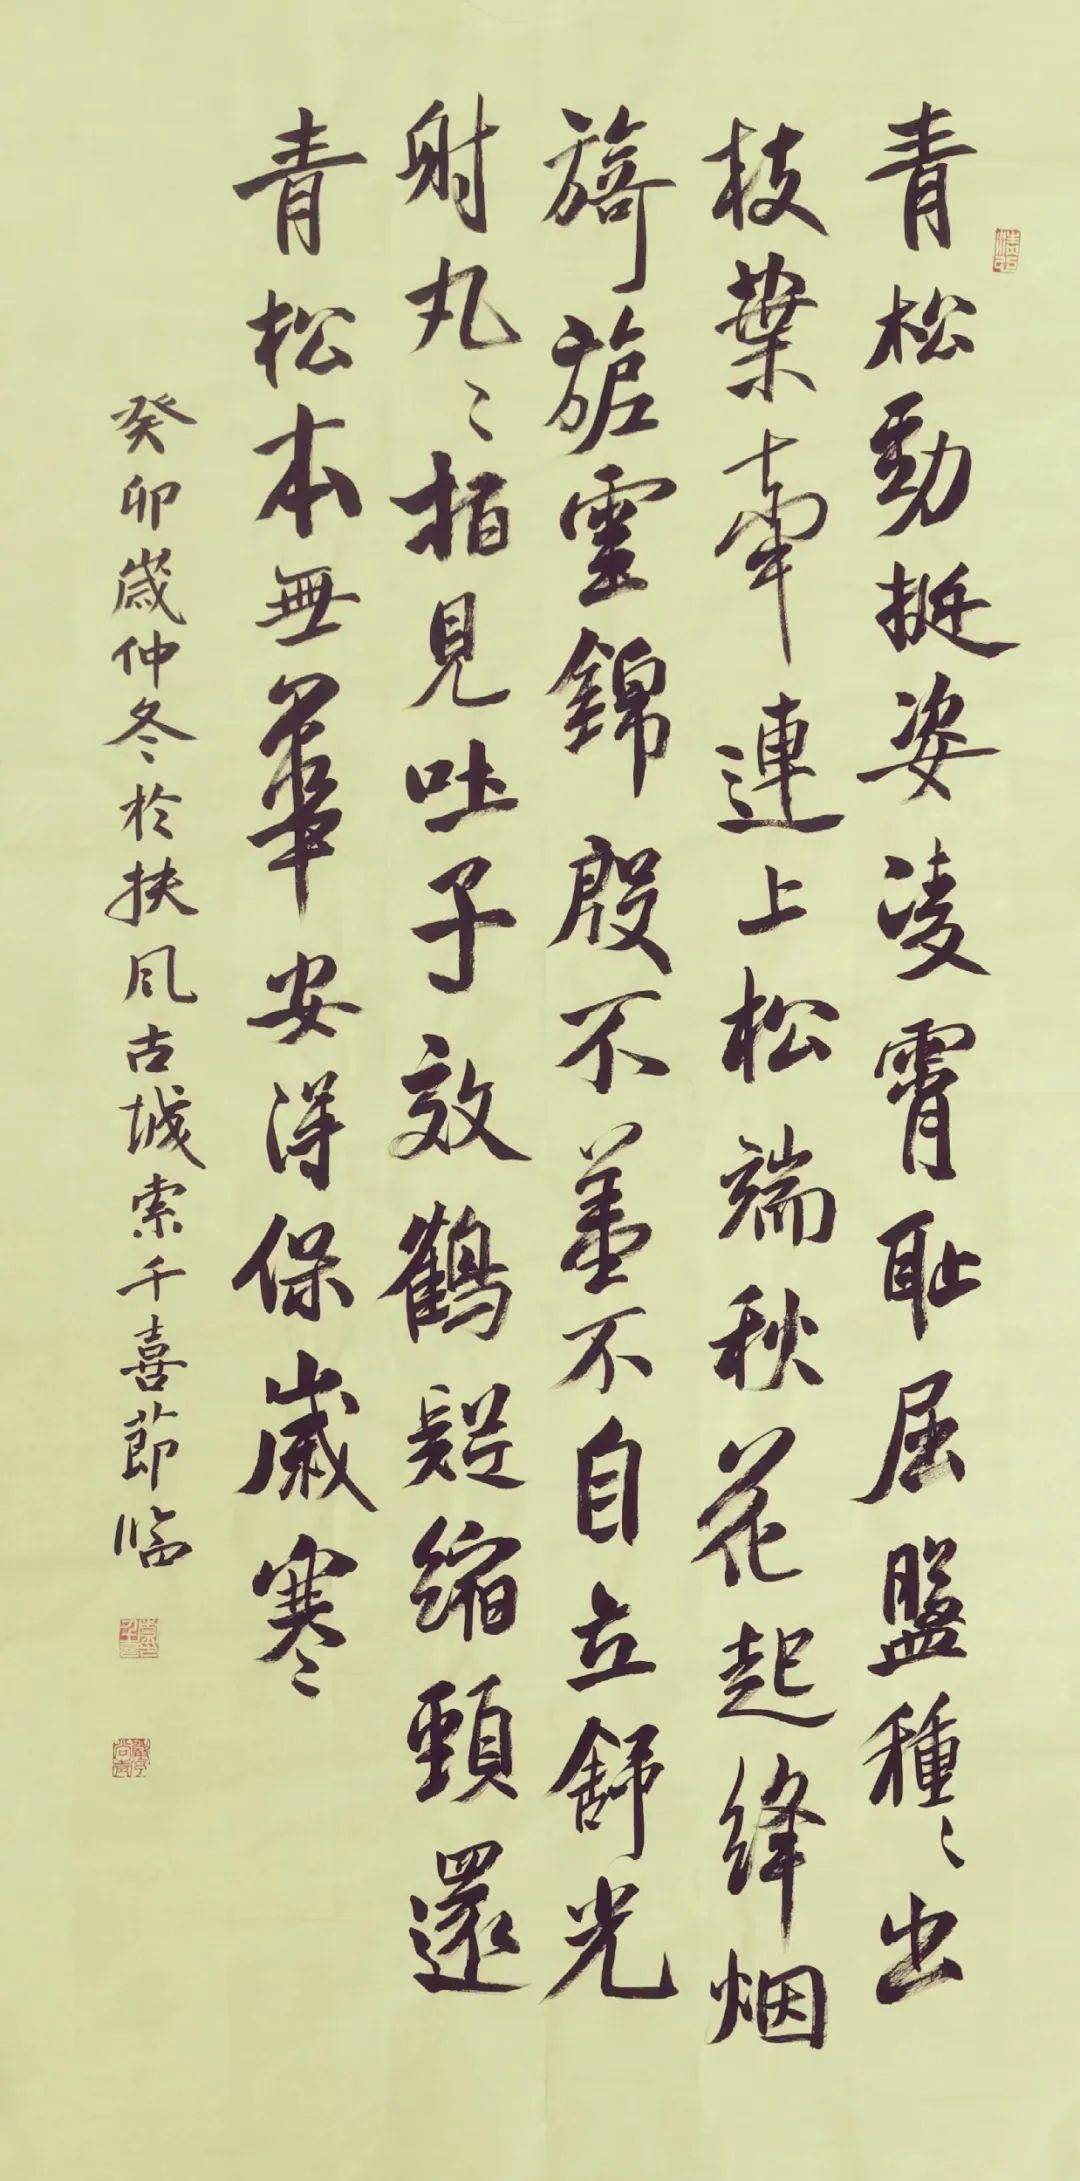 青松勁挺姿凌霄耻屈盤種〻出
枝葉牽連上松端秋花起絳烟
旖旎雲錦殷不羞不自立舒光
射丸〻柏見吐子效鶴疑縮頸還
青松本無華安得保歲寒
癸卯歲仲冬於扶風古城索千喜節臨